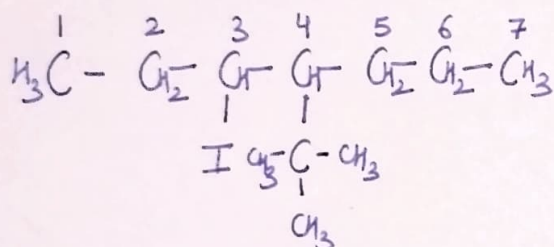 1 2 3 4 5 6 7
H₃C - CH₂ - CH - CH - CH₂ - CH₂ - CH₃
I CH₃ - C - CH₃
CH₃